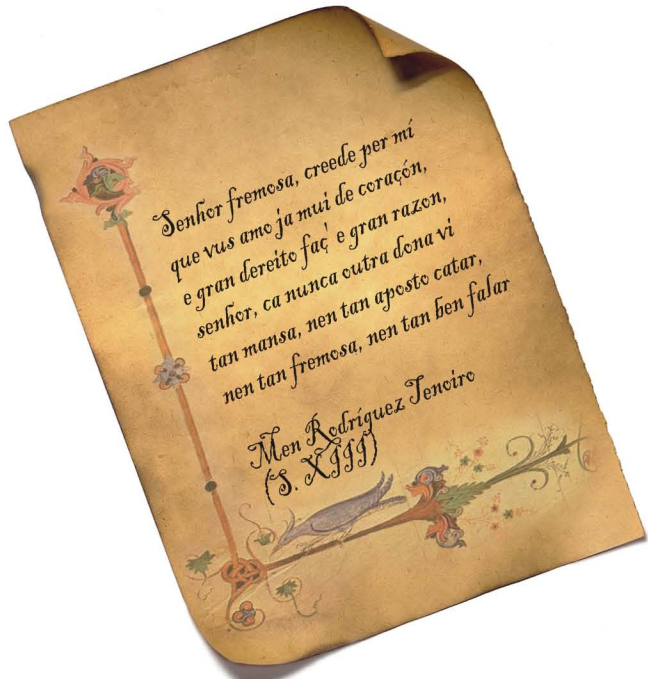 Senhor fremosa, creede per mí
que vus amo ja mui de coraçón,
e gran dereito faç' e gran razon,
senhor, ca nunca outra dona vi
tan mansa, nen tan aposto catar,
nen tan fremosa, nen tan ben falar
Men Rodríguez Tenoiro
(S. XIII)